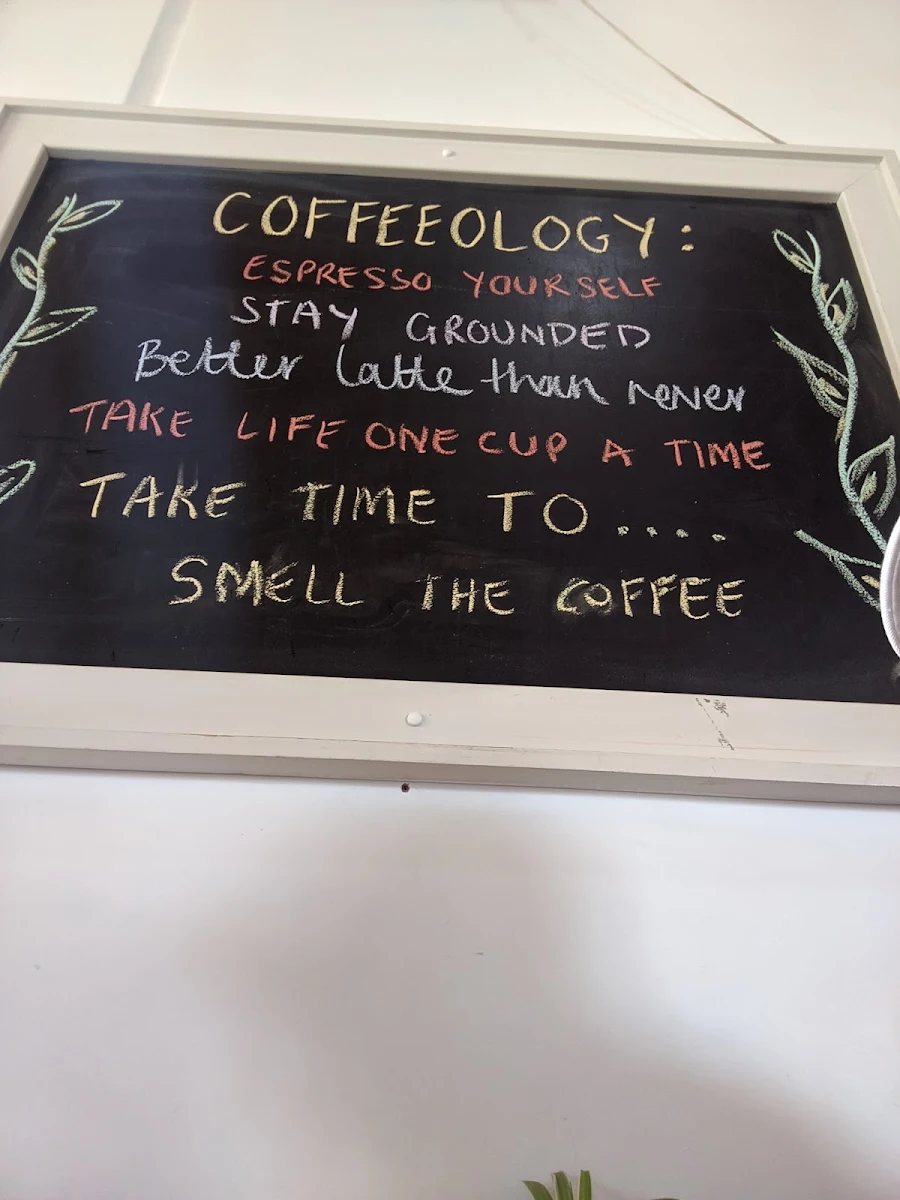 COFFEEOLOGY:
ESPRESSO YOURSELF
STAY GROUNDED
Better latte than never
TAKE LIFE ONE CUP A TIME
TAKE TIME TO....
SMELL THE COFFEE